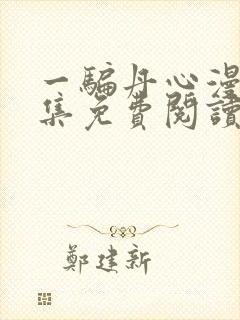 一騙丹心漫
集免費閱讀
鄭建新